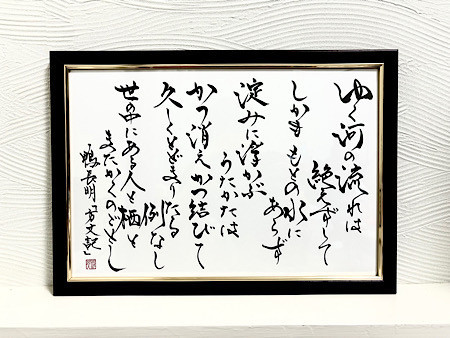 ゆく河の流れは
絶えずして
しかももとの水に
あらず
淀みに浮かぶ
うたかたは
かつ消えかつ結びて
久しくとどまりたる
例なし
世の中にある人と栖と
またかくのごとし
鴨長明「方丈記」